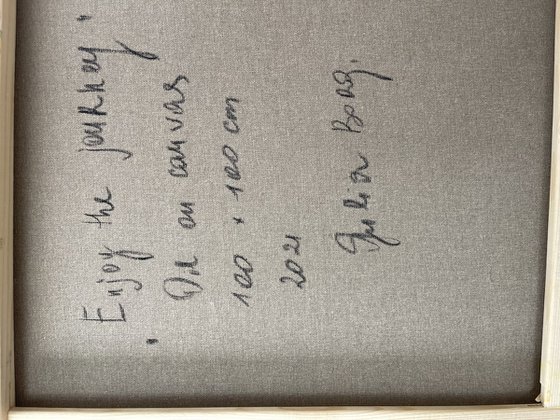 "Enjoy the journey"
Oil on canvas
100 x 100 cm
2021